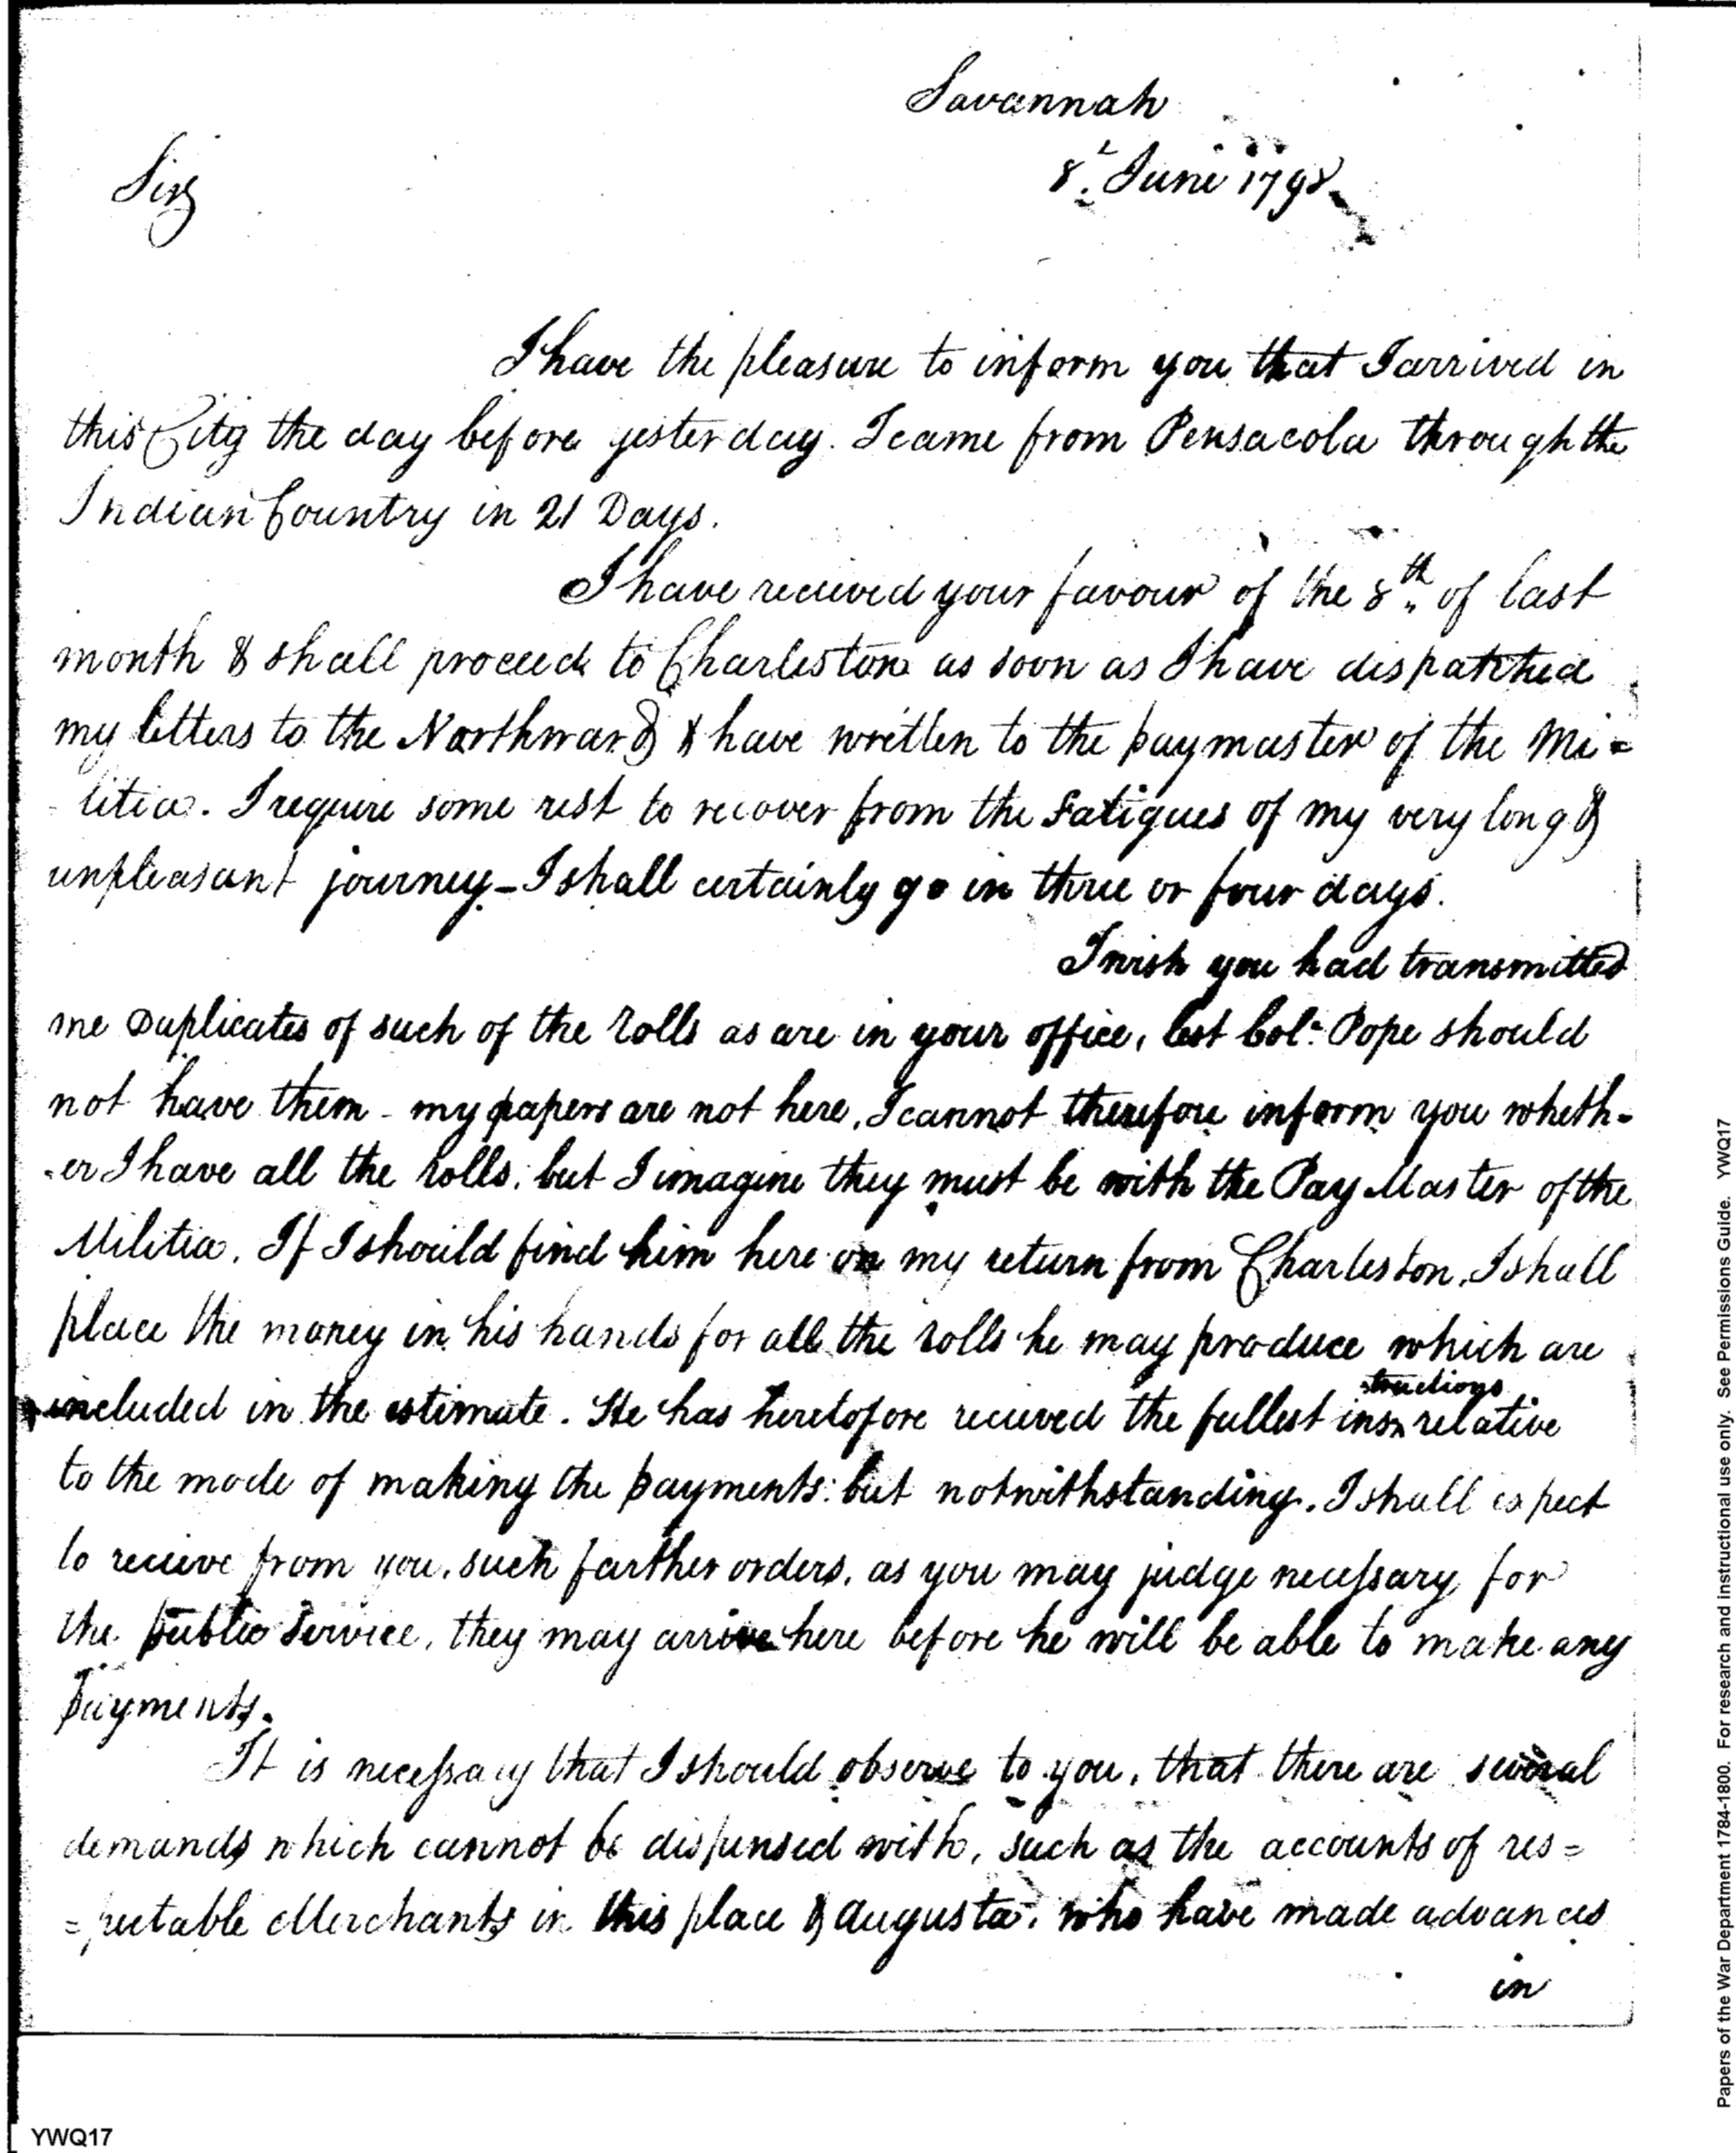 Savannah
8.t June 1798.
Sir,
I have the pleasure to inform you that I arrived in
this City the day before yesterday. I came from Pensacola through the
Indian Country in 21 Days.
I have recieved your favour of the 8th. of last
month & shall proceed to Charleston as soon as I have dispatched
my letters to the Northward & have written to the paymaster of the Mi=
litia. I require some rest to recover from the Fatigues of my very long &
unpleasant journey – I shall certainly go in three or four days.
I wish you had transmitted
me Duplicates of such of the Rolls as are in your office, lest Col: Pope should
not have them – my papers are not here, I cannot therefore inform you wheth-
-er I have all the rolls; but I imagine they must be with the Pay Master of the
Militia. If I should find him here on my return from Charleston, I shall
place the money in his hands for all the rolls he may produce which are
included in the estimate. He has heretofore recieved the fullest instructions relative
to the mode of making the payments: but notwithstanding, I shall expect
to recieve from you, such farther orders, as you may judge necessary for
the public Service, they may arrive here before he will be able to make any
payments.
It is necessary that I should observe to you, that there are several
demands which cannot be dispensed with, such as the accounts of res=
=pectable Merchants in this place & Augusta, who have made advances
in
YWQ17
Papers of the War Department 1784-1800. For research and instructional use only. See Permissions Guide. YWQ17